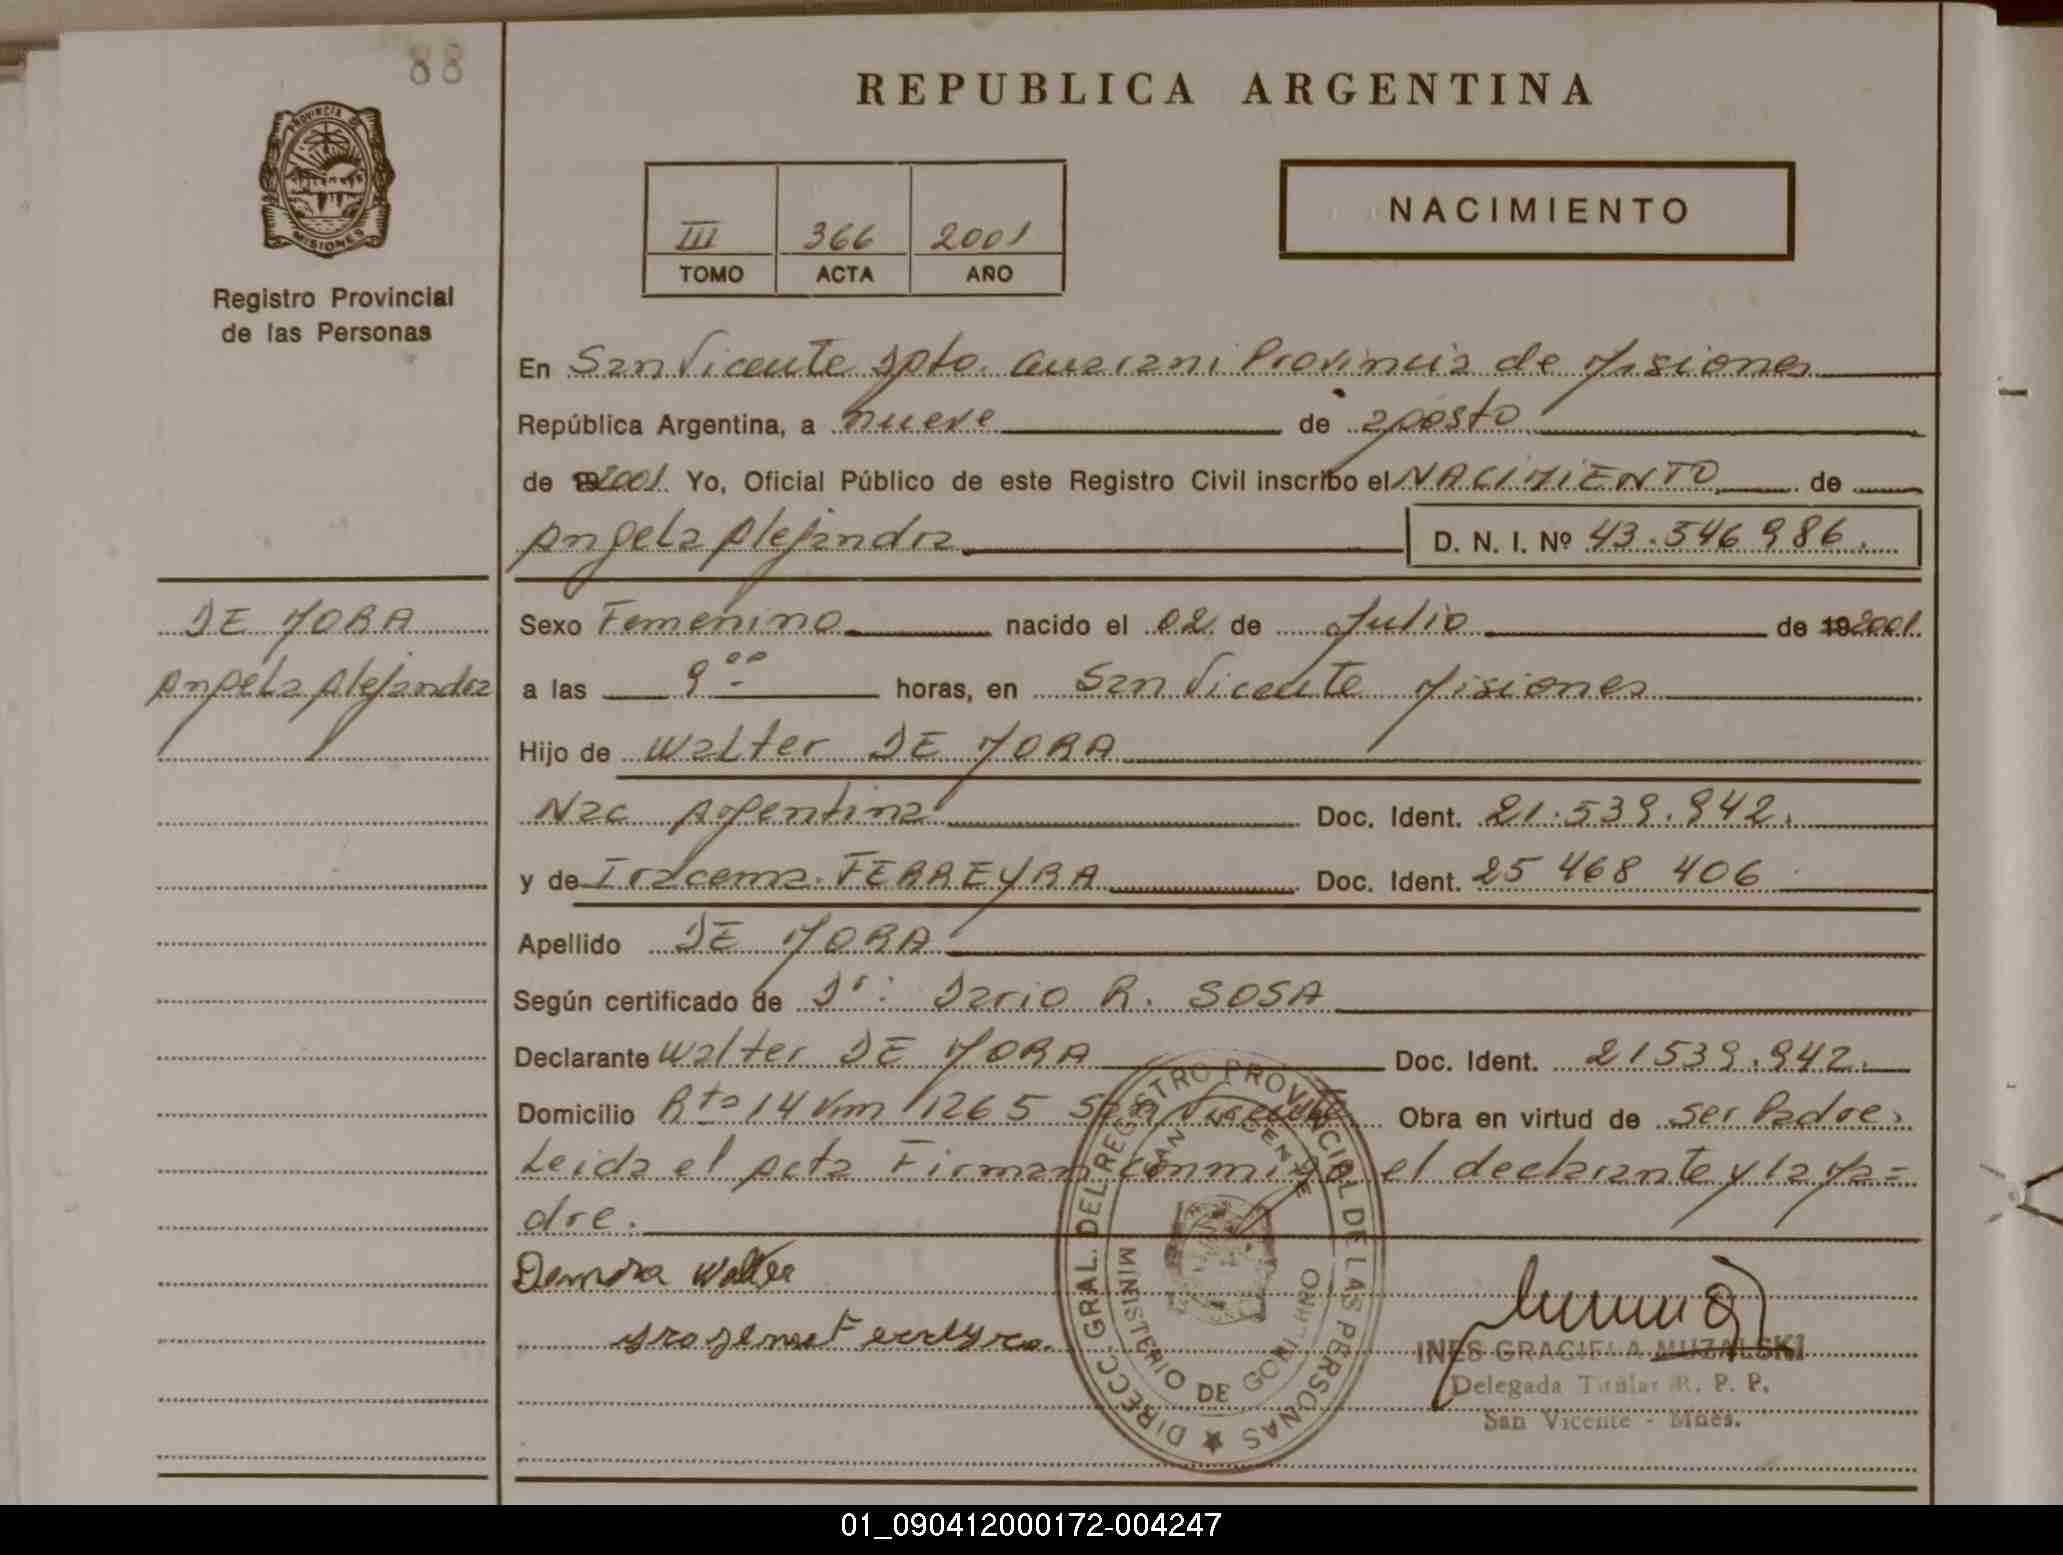 88
REPUBLICA ARGENTINA
PROVINCIA DE
MISIONES
Registro Provincial
de las Personas
III 366 2001
TOMO ACTA AÑO
NACIMIENTO
En San Vicente Dpto. Guarani Provincia de Misiones
República Argentina, a nueve de agosto
de 2001 Yo, Oficial Público de este Registro Civil inscribo el NACIMIENTO de
Angela Alejandra D. N. I. Nº 43.546 986.
DE MORA
Angela Alejandra
Sexo Femenino nacido el 02 de Julio de 19 2001
a las 9 00 horas, en San Vicente Misiones
Hijo de Walter DE MORA
Nac Argentina Doc. Ident. 21.539.942.
y de Iracema FERREYRA Doc. Ident. 25 468 406
Apellido DE MORA
Según certificado de Dr: Dario R. SOSA
Declarante Walter DE MORA Doc. Ident. 21539.942.
Domicilio Rta 14 Km 1265 San Vicente Obra en virtud de ser Padre.
Leida el acta Firman conmigo el declarante y la Ma=
dre.
Demora Walter
Ferreyra
DIRECC. GRAL. DEL REGISTRO PROVINCIAL DE LAS PERSONAS
SAN VICENTE
MINISTERIO DE GOBIERNO
INES GRACIELA MUZALSKI
Delegada Titular R. P. P.
San Vicente - Mnes.
01_090412000172-004247